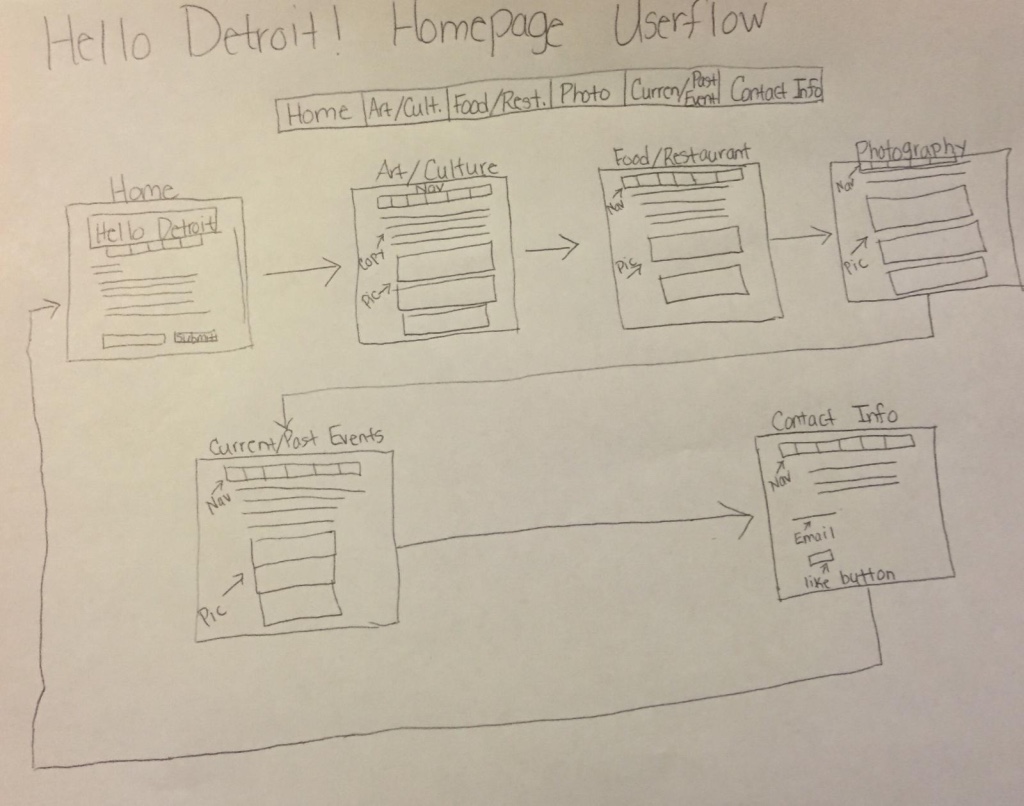 Hello Detroit! Homepage Userflow
Home Art/Cult. Food/Rest. Photo Curren/Past Event Contact Info
Home
Hello Detroit
Submit
Art/Culture
Nav
Copy
Pic
Food/Restaurant
Nav
Pic
Photography
Nav
Pic
Current/Past Events
Nav
Pic
Contact Info
Nav
Email
like button